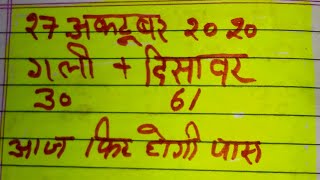 २७ अक्टूबर २०२०
गली + दिसावर
30 61
आज फिर होगी पास